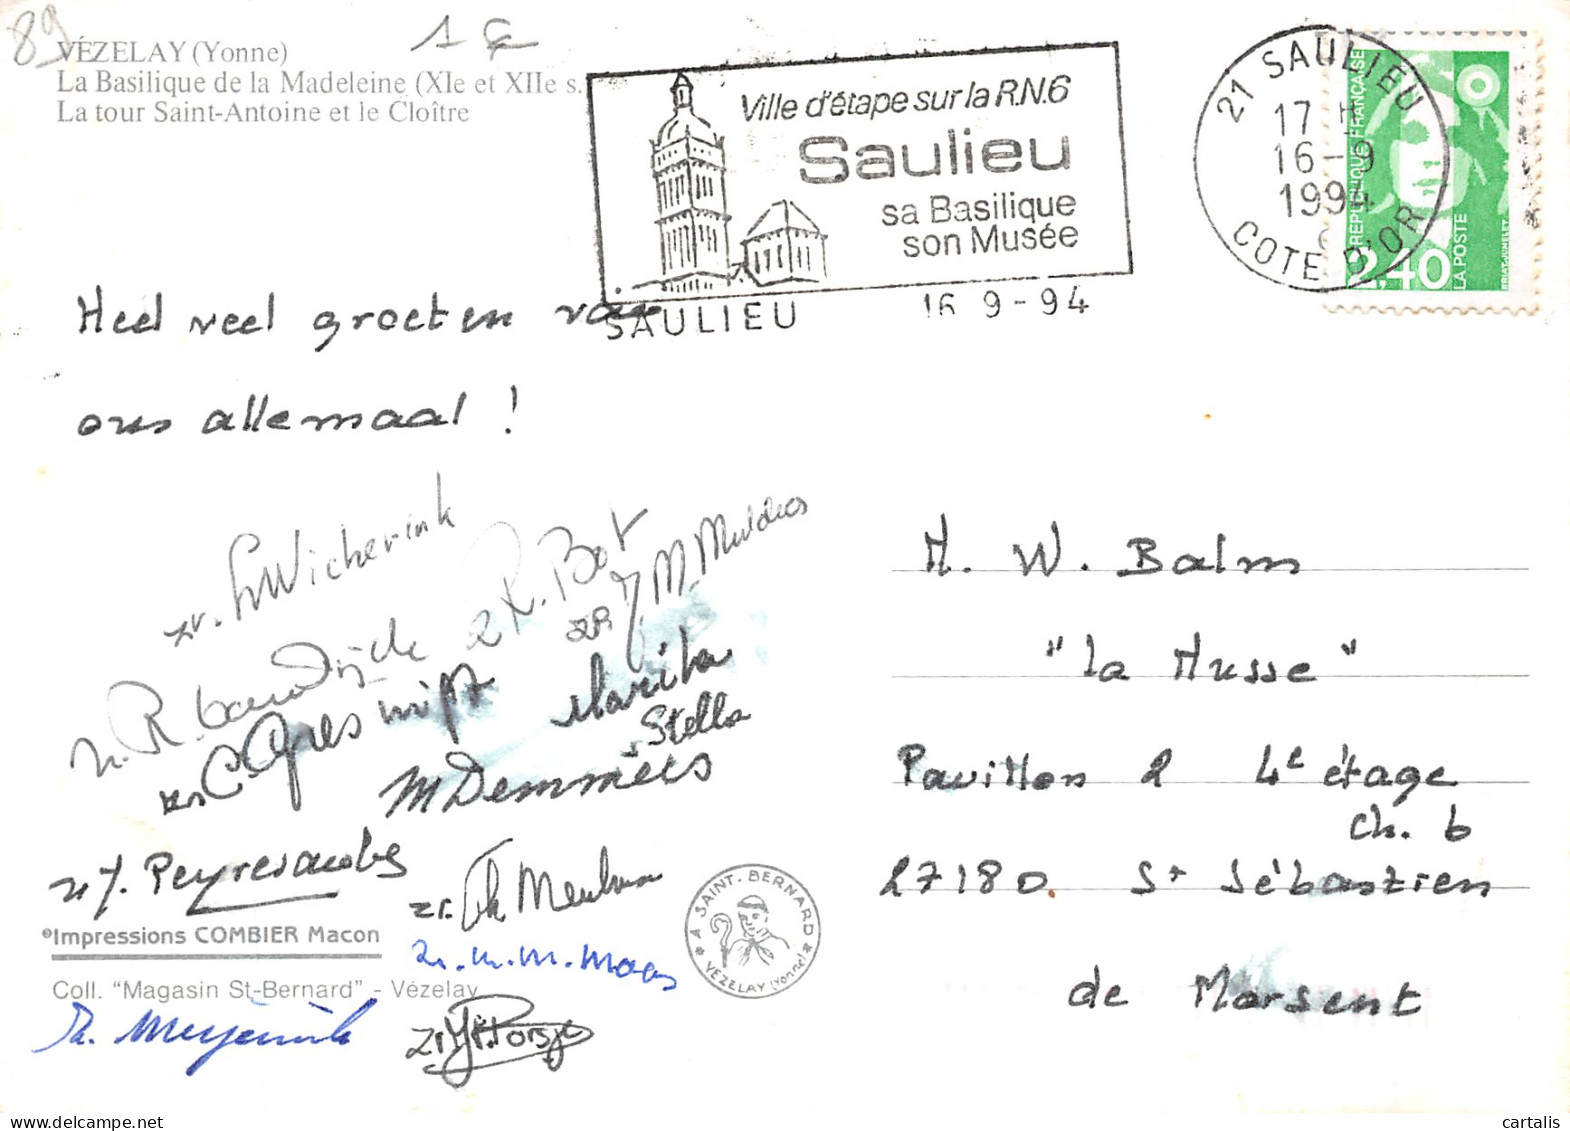 89
1 €
VÉZELAY (Yonne)
La Basilique de la Madeleine (XIe et XIIe s.
La tour Saint-Antoine et le Cloître
Ville d'étape sur la R.N.6
Saulieu
sa Basilique
son Musée
SAULIEU 16 9-94
21 SAULIEU
17 H
16-9
1994
COTE D'OR
REPUBLIQUE FRANÇAISE
2,40
LA POSTE
BRIAT-JUMELET
Heel veel groeten van
ons allemaal !
zr. Wicherink
R. Bot
zr. J. M. Mulders
Marika
Stella
M Demmers
zr J. Peyresaubes
zr. Th Meulman
zr. m. m. Maas
°Impressions COMBIER Macon
Coll. "Magasin St-Bernard" - Vézelay
* A SAINT-BERNARD *
VÉZELAY (Yonne)
M. W. Balm
"La Musse"
Pavillon 2 4e étage
ch. 6
27180 St Sébastien
de Morsent
cartalis